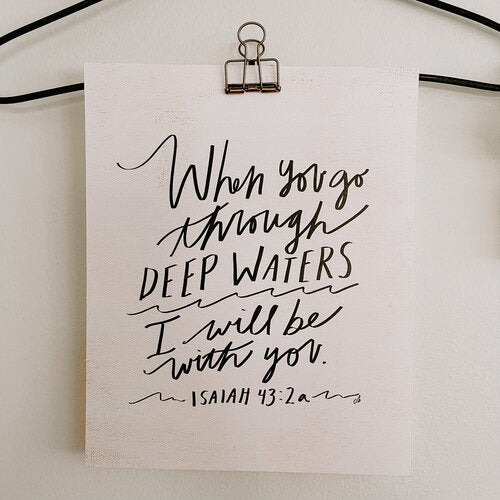 When you go
through
DEEP WATERS
I will be
with you.
ISAIAH 43:2a